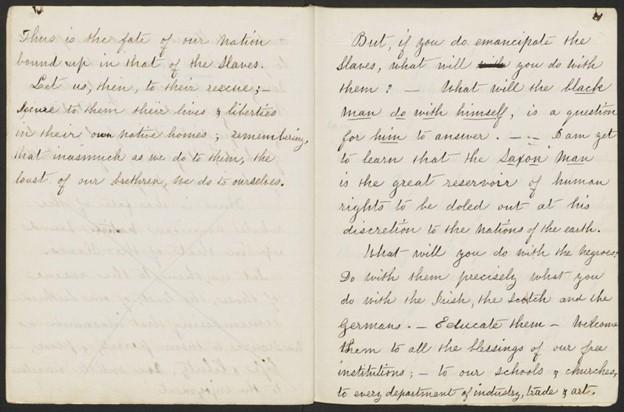 Thus is the fate of our Nation
bound up in that of the Slaves.
Let us, then, to their rescue; –
Secure to them their lives & liberties
in their own native homes; remembering,
that inasmuch as we do to them, the
least of our brethren, we do to ourselves.
But, if you do emancipate the
Slaves, what will you do with
them? – What will the black
man do with himself, is a question
for him to answer. – . – I am yet
to learn that the Saxon man
is the great reservoir of human
rights to be doled out at his
discretion to the Nations of the earth.
What will you do with the Negroes;
Do with them precisely what you
do with the Irish, the Scotch and the
Germans. – Educate them – Welcome
them to all the blessings of our free
institutions; – to our schools & churches,
to every department of industry, trade & art.